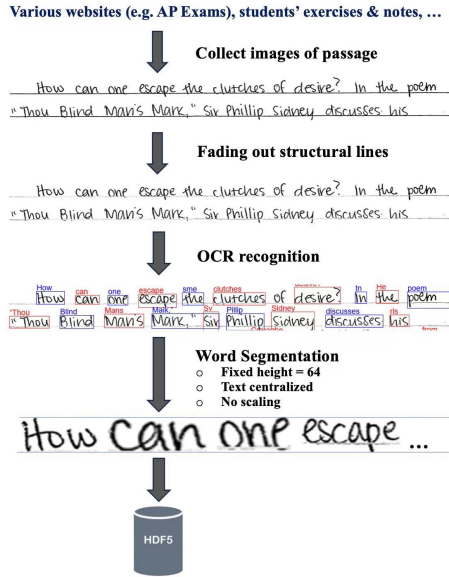 Various websites (e.g. AP Exams), students' exercises & notes, …
Collect images of passage
How can one escape the clutches of desire? In the poem
"Thou Blind Man's Mark," Sir Phillip Sidney discusses his
Fading out structural lines
How can one escape the clutches of desire? In the poem
"Thou Blind Man's Mark," Sir Phillip Sidney discusses his
OCR recognition
How can one escape sme clutches tn He poem
How can one escape the clutches of desire? In the poem
"Thou Blind Mans Maik, Sv Pillip Sidney discusses
"Thou Blind Man's Mark," Sir Phillip Sidney discusses his
Word Segmentation
○ Fixed height = 64
○ Text centralized
○ No scaling
How can one escape ...
HDF5